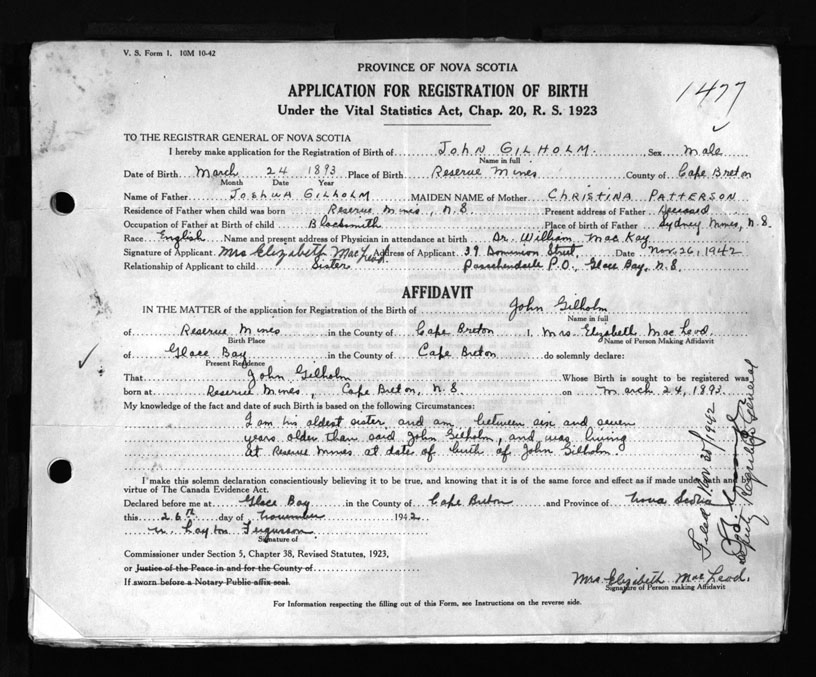 V. S. Form 1. 10M 10-42
PROVINCE OF NOVA SCOTIA
APPLICATION FOR REGISTRATION OF BIRTH
Under the Vital Statistics Act, Chap. 20, R. S. 1923
1477
TO THE REGISTRAR GENERAL OF NOVA SCOTIA
I hereby make application for the Registration of Birth of John Gilholm. Sex Male
Name in full
Date of Birth March 24 1893 Place of Birth Reserve Mines County of Cape Breton
Month Date Year
Name of Father Joshua Gilholm MAIDEN NAME of Mother Christina Patterson
Residence of Father when child was born Reserve Mines, N.S. Present address of Father Deceased
Occupation of Father at Birth of child Blacksmith Place of birth of Father Sydney Mines, N.S.
Race English Name and present address of Physician in attendance at birth Dr. William MacKay
Signature of Applicant Mrs Elizabeth MacLeod. Address of Applicant 39 Dominion Street, Date Nov. 26, 1942
Relationship of Applicant to child Sister Passchendale P.O., Glace Bay, N.S.
AFFIDAVIT
IN THE MATTER of the application for Registration of the Birth of John Gilholm
Name in full
of Reserve Mines in the County of Cape Breton I, Mrs. Elizabeth MacLeod
Birth Place Name of Person Making Affidavit
of Glace Bay in the County of Cape Breton do solemnly declare:
Present Residence
That John Gilholm Whose Birth is sought to be registered was
born at Reserve Mines, Cape Breton, N.S. on March 24, 1893
My knowledge of the fact and date of such Birth is based on the following Circumstances:
I am his oldest sister and am between six and seven
years older than said John Gilholm, and was living
at Reserve Mines at date of birth of John Gilholm.
I make this solemn declaration conscientiously believing it to be true, and knowing that it is of the same force and effect as if made under oath and by
virtue of The Canada Evidence Act.
Declared before me at Glace Bay in the County of Cape Breton and Province of Nova Scotia
this 26th day of November 1942
Layton Fergusson
Signature of
Commissioner under Section 5, Chapter 38, Revised Statutes, 1923,
or Justice of the Peace in and for the County of
If sworn before a Notary Public affix seal.
Mrs. Elizabeth MacLeod.
Signature of Person making Affidavit
For Information respecting the filling out of this Form, see Instructions on the reverse side.
Filed Nov. 28/1942
Deputy Registrar General